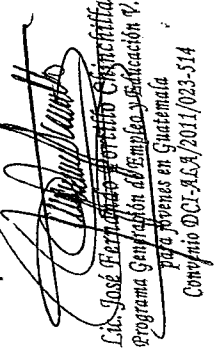 Lic. José Fernando Portillo Chinchilla
Programa Generación de Empleo y Educación V.
para jóvenes en Guatemala
Convenio DCI-ALA/2011/023-514